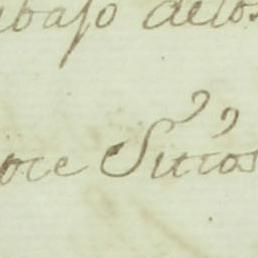 abajo delos
oce Sitios